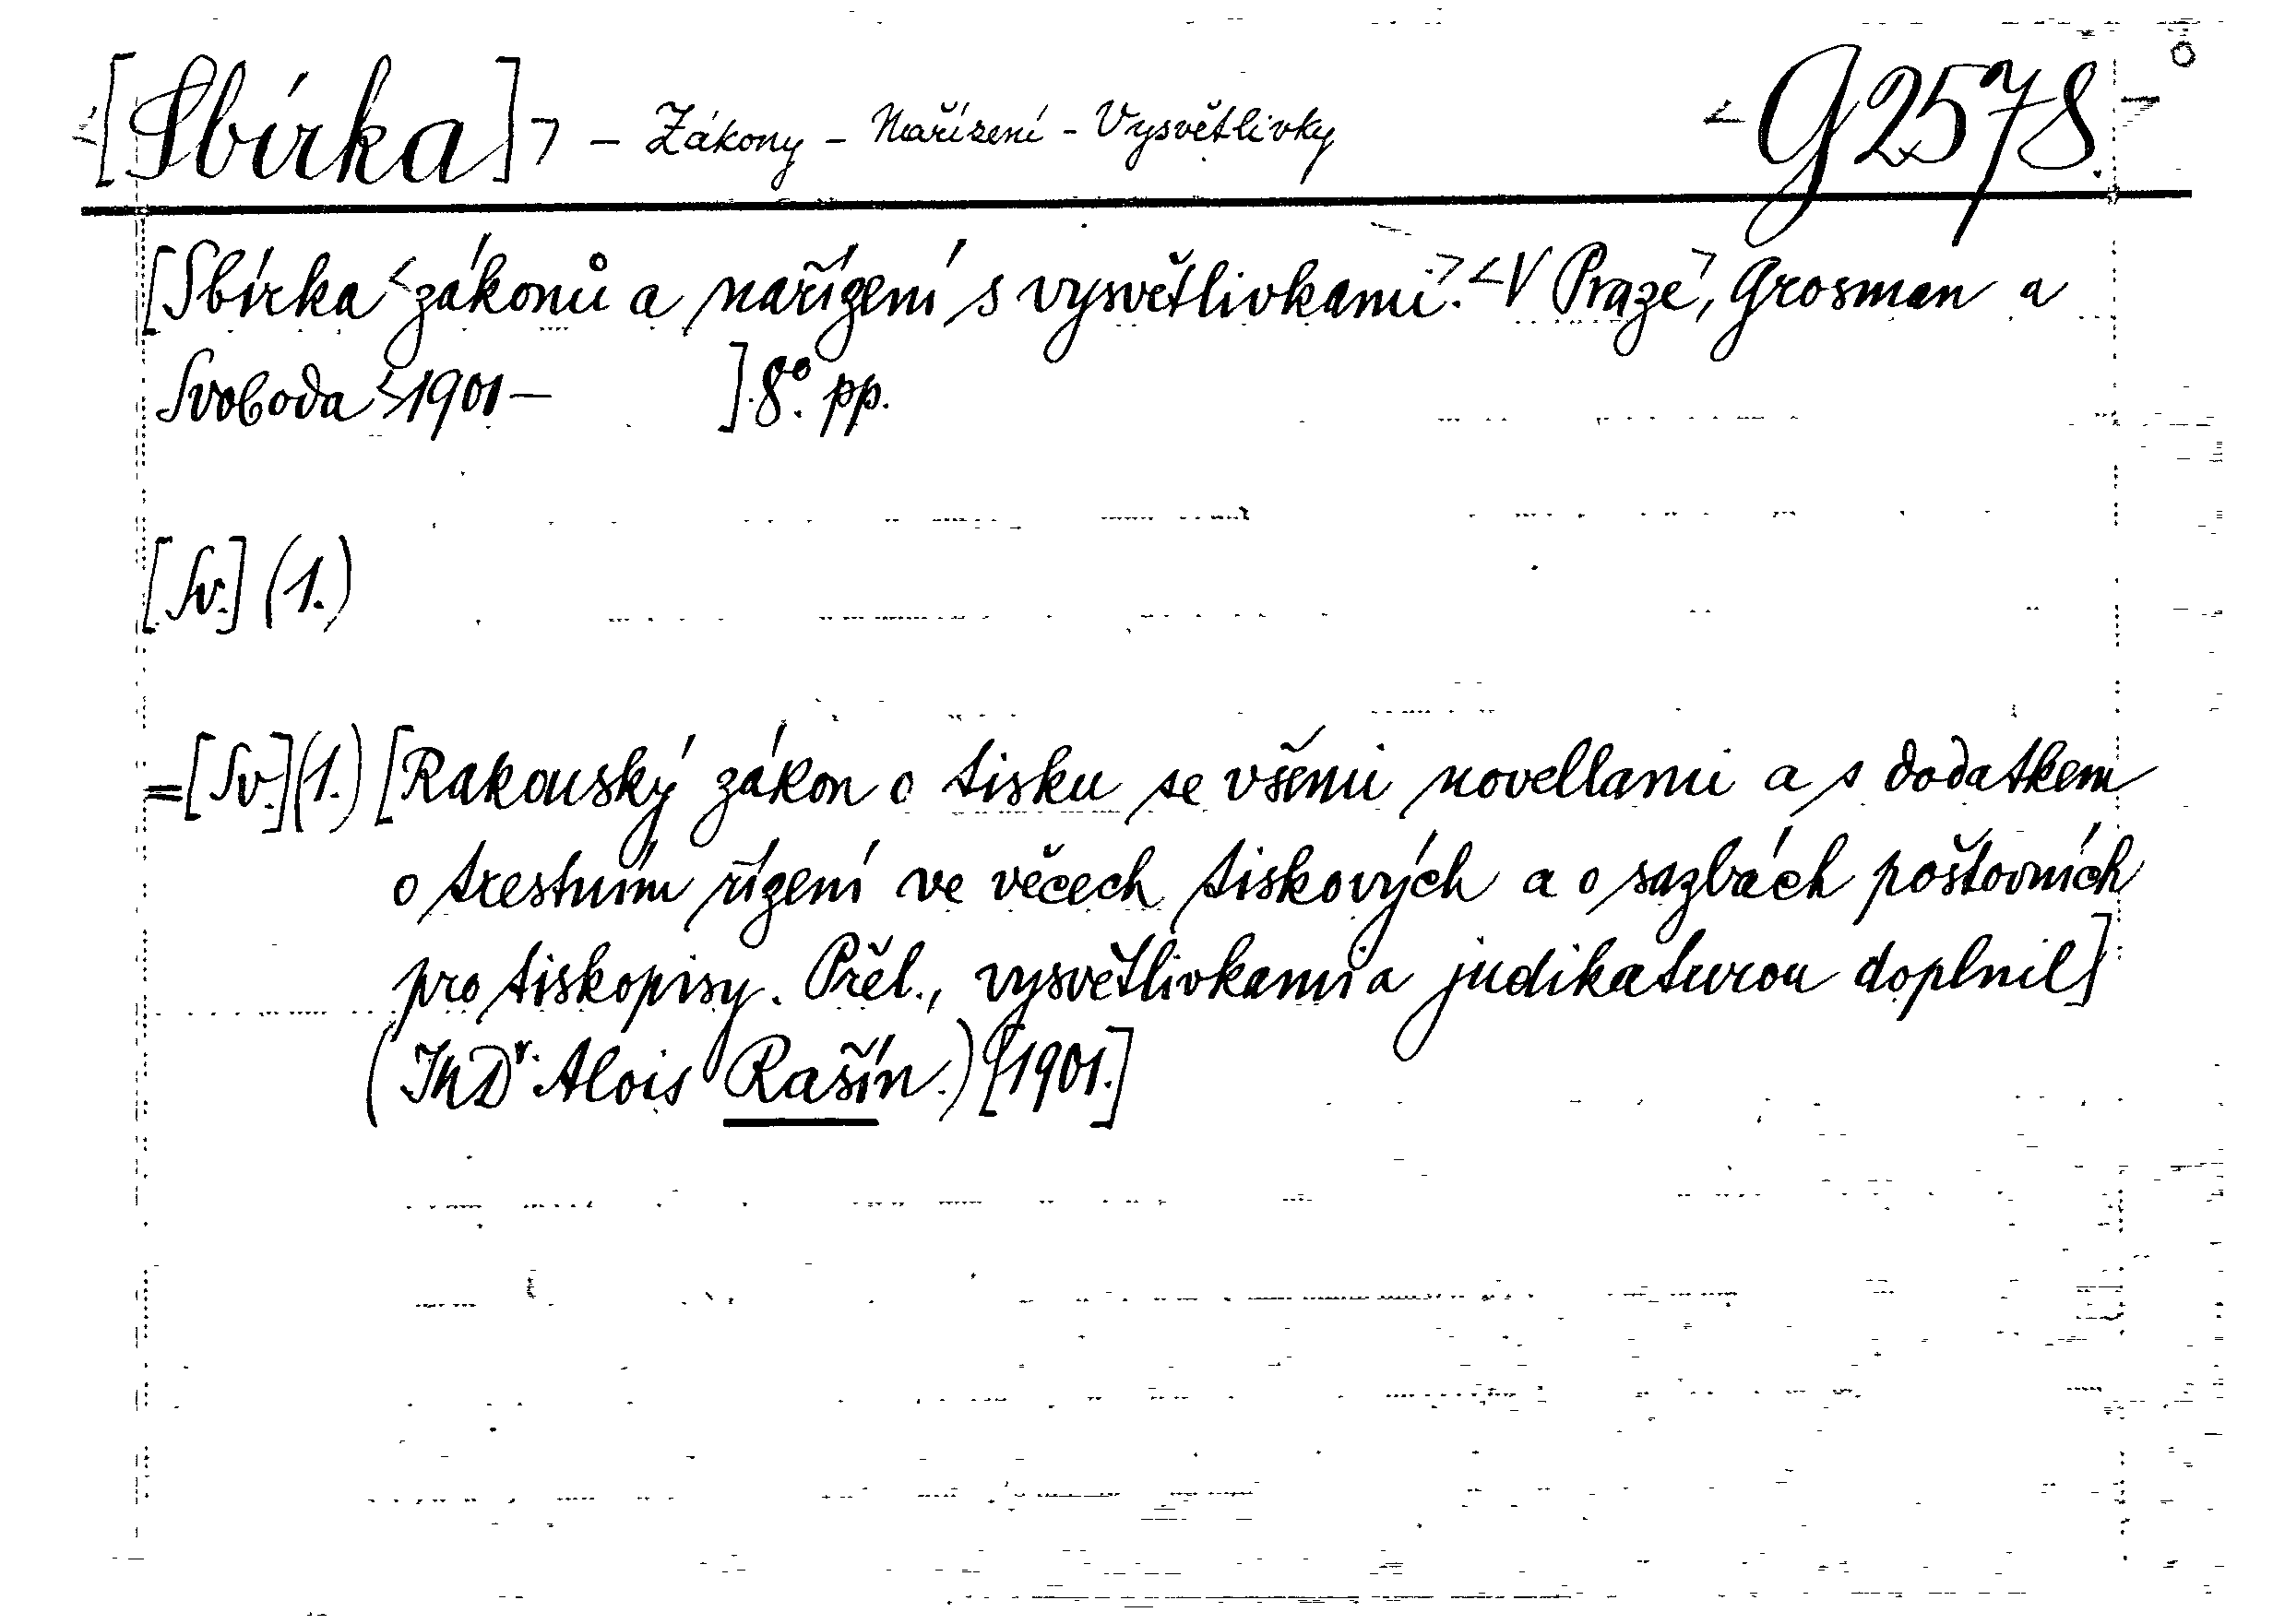 <[Sbírka]> – Zákony – Nařízení – Vysvětlivky <G 2578.>
[Sbírka <zákonů a nařízení s vysvětlivkami.> <V Praze>, Grosman a
Svoboda <>1901– ]. 8°. pp.
[Sv.] (1.)
=[Sv.](1.) [Rakouský zákon o tisku se všemi novellami a s dodatkem
o trestním řízení ve věcech tiskových a o sazbách poštovních
pro tiskopisy. Přel., vysvětlivkami a judikaturou doplnil]
(JUDr. Alois Rašín.) [1901.]